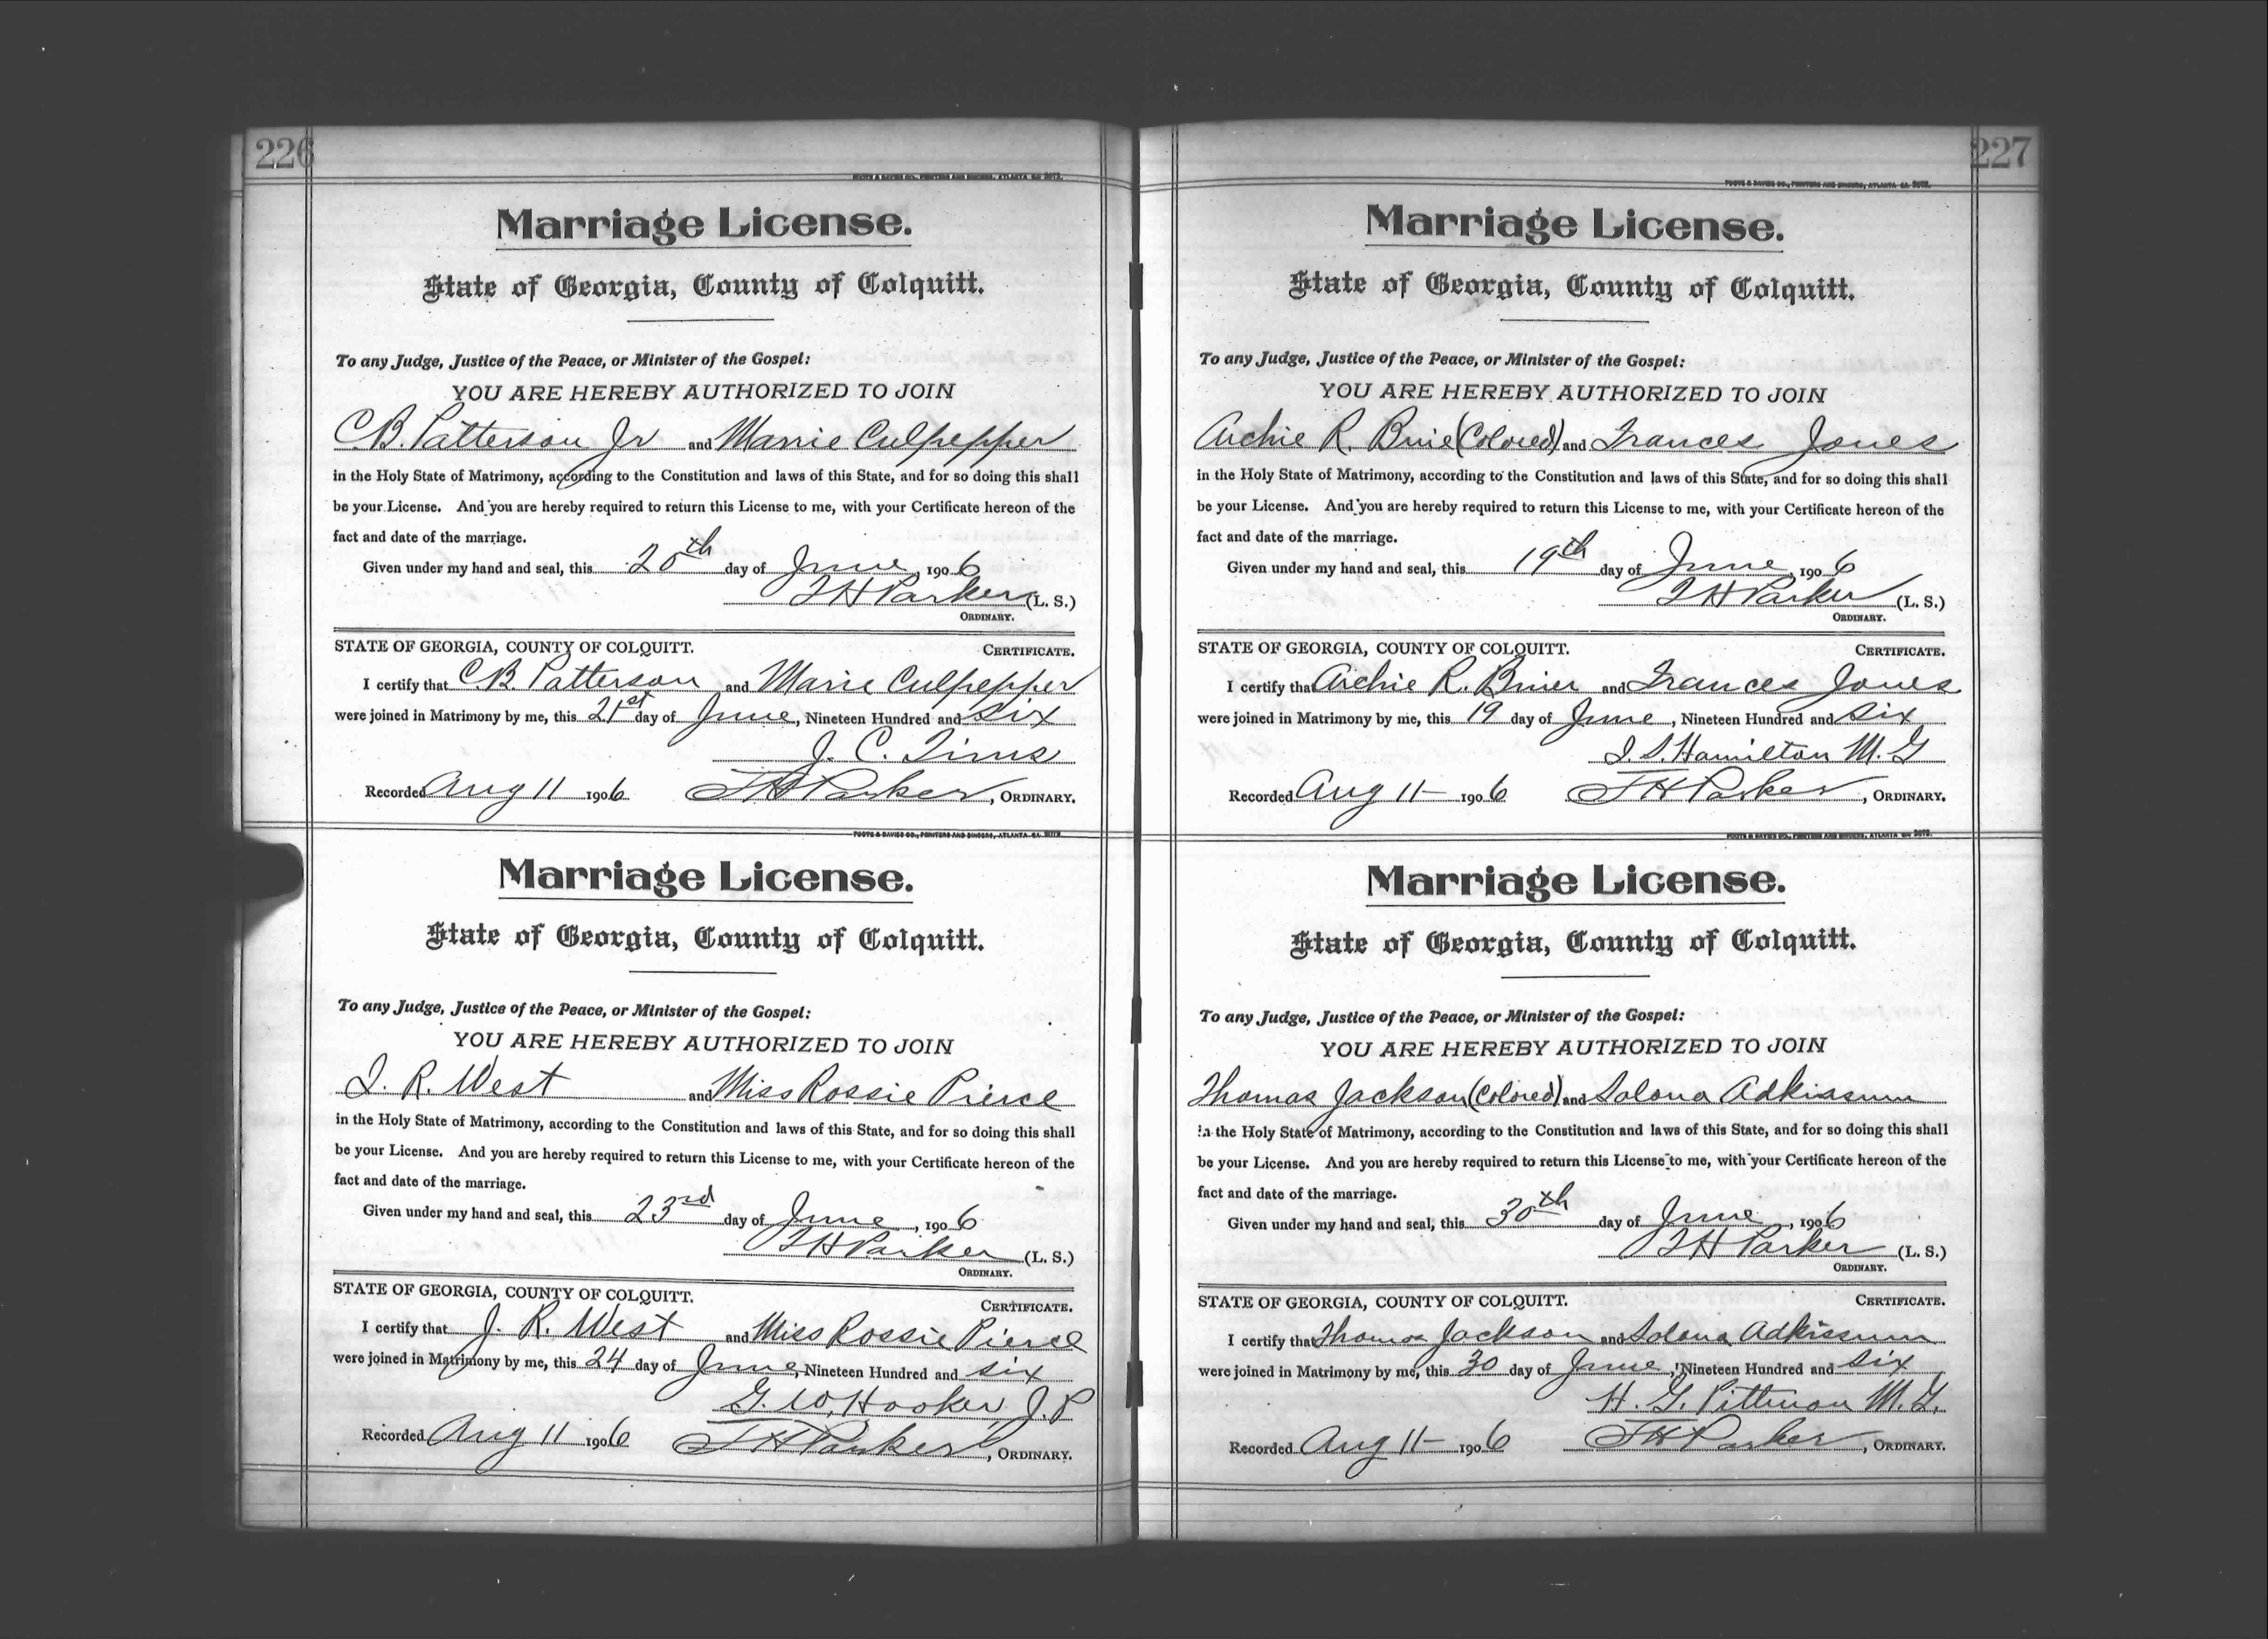 226
FOOTE & DAVIES CO., PRINTERS AND BINDERS, ATLANTA GA
Marriage License.
State of Georgia, County of Colquitt.
To any Judge, Justice of the Peace, or Minister of the Gospel:
YOU ARE HEREBY AUTHORIZED TO JOIN
C.B. Patterson Jr and Marrie Culpepper
in the Holy State of Matrimony, according to the Constitution and laws of this State, and for so doing this shall
be your License. And you are hereby required to return this License to me, with your Certificate hereon of the
fact and date of the marriage.
Given under my hand and seal, this 20th day of June, 1906
T H Parker (L. S.)
ORDINARY.
STATE OF GEORGIA, COUNTY OF COLQUITT.
CERTIFICATE.
I certify that C.B. Patterson and Marie Culpepper
were joined in Matrimony by me, this 21st day of June, Nineteen Hundred and six
J. C. Tims
Recorded Aug 11 1906 T H Parker, ORDINARY.
FOOTE & DAVIES CO., PRINTERS AND BINDERS, ATLANTA GA
Marriage License.
State of Georgia, County of Colquitt.
To any Judge, Justice of the Peace, or Minister of the Gospel:
YOU ARE HEREBY AUTHORIZED TO JOIN
J. R. West and Miss Rossie Pierce
in the Holy State of Matrimony, according to the Constitution and laws of this State, and for so doing this shall
be your License. And you are hereby required to return this License to me, with your Certificate hereon of the
fact and date of the marriage.
Given under my hand and seal, this 23rd day of June, 1906
T H Parker (L. S.)
ORDINARY.
STATE OF GEORGIA, COUNTY OF COLQUITT.
CERTIFICATE.
I certify that J. R. West and Miss Rossie Pierce
were joined in Matrimony by me, this 24 day of June, Nineteen Hundred and six
G. W. Hooker J. P
Recorded Aug 11 1906 T H Parker, ORDINARY.
227
FOOTE & DAVIES CO., PRINTERS AND BINDERS, ATLANTA GA
Marriage License.
State of Georgia, County of Colquitt.
To any Judge, Justice of the Peace, or Minister of the Gospel:
YOU ARE HEREBY AUTHORIZED TO JOIN
Archie R. Buie (Colored) and Frances Jones
in the Holy State of Matrimony, according to the Constitution and laws of this State, and for so doing this shall
be your License. And you are hereby required to return this License to me, with your Certificate hereon of the
fact and date of the marriage.
Given under my hand and seal, this 19th day of June, 1906
T H Parker (L. S.)
ORDINARY.
STATE OF GEORGIA, COUNTY OF COLQUITT.
CERTIFICATE.
I certify that Archie R. Briier and Frances Jones
were joined in Matrimony by me, this 19 day of June, Nineteen Hundred and six
Hamilton M. G
Recorded Aug 11- 1906 T H Parker, ORDINARY.
FOOTE & DAVIES CO., PRINTERS AND BINDERS, ATLANTA GA
Marriage License.
State of Georgia, County of Colquitt.
To any Judge, Justice of the Peace, or Minister of the Gospel:
YOU ARE HEREBY AUTHORIZED TO JOIN
Thomas Jackson (Colored) and Solona Adkissum
in the Holy State of Matrimony, according to the Constitution and laws of this State, and for so doing this shall
be your License. And you are hereby required to return this License to me, with your Certificate hereon of the
fact and date of the marriage.
Given under my hand and seal, this 30th day of June, 1906
T H Parker (L. S.)
ORDINARY.
STATE OF GEORGIA, COUNTY OF COLQUITT.
CERTIFICATE.
I certify that Thomas Jackson and Solona Adkissum
were joined in Matrimony by me, this 30 day of June, Nineteen Hundred and six
H. G. Pittman M. G.
Recorded Aug 11- 1906 T H Parker, ORDINARY.